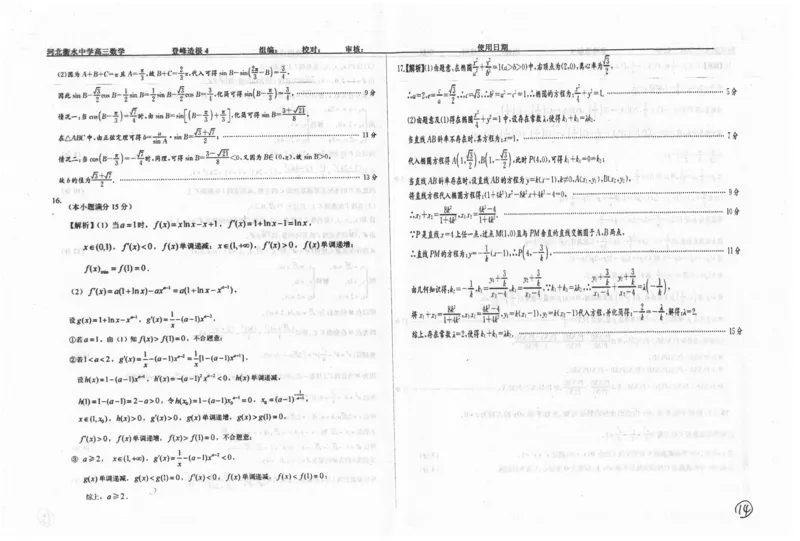 河北衡水中学高三数学 登峰造极 4 组编: 校对: 审核: 使用日期
(2)因为 A+B+C=π 且 A=π/3,故 B+C=2π/3,代入可得 sin B-sin(2π/3-B)=3/4,
因此 sin B-√3/2 cos B-1/2 sin B=1/2 sin B-√3/2 cos B=3/4,化简可得 sin(B-π/3)=3/4, 9分
情况一:当 cos(B-π/3)=√7/4 时,由 sin B=sin[(B-π/3)+π/3],化简可得 sin B=(3+√21)/8.
在△ABC 中,由正弦定理可得 b=a/sin A·sin B=(√3+√7)/2; 11分
情况二:当 cos(B-π/3)=-√7/4 时,同理,可得 sin B=(3-√21)/8<0,又因为 B∈(0,π),故 sin B>0,
故 b 的值为 (√3+√7)/2. 13分
16.
(本小题满分 15 分)
【解析】(1) 当 a=1 时, f(x)=xln x-x+1, f′(x)=1+ln x-1=ln x,
x∈(0,1), f′(x)<0, f(x) 单调递减; x∈(1,+∞), f′(x)>0, f(x) 单调递增;
f(x)min=f(1)=0.
(2) f′(x)=a(1+ln x)-ax^(a-1)=a(1+ln x-x^(a-1)),
设 g(x)=1+ln x-x^(a-1), g′(x)=1/x-(a-1)x^(a-2),
①若 a=1, 由 (1) 知 f(x)>f(1)=0, 不合题意;
②若 1<a<2, g′(x)=1/x-(a-1)x^(a-2)=1/x[1-(a-1)x^(a-1)],
设 h(x)=1-(a-1)x^(a-1), h′(x)=-(a-1)²x^(a-2)<0, h(x) 单调递减,
h(1)=1-(a-1)=2-a>0, 令 h(x₀)=1-(a-1)x₀^(a-1)=0,
x∈(1,x₀), h(x)>0, g′(x)>0, g(x) 单调递增, g(x)>g(1)=0.
f′(x)>0, f(x) 单调递增, f(x)>f(1)=0, 不合题意;
③ a⩾2, x∈(1,+∞), g′(x)=1/x-(a-1)x^(a-2)<0,
g(x) 单调递减, g(x)<g(1)=0, f′(x)<0, f(x) 单调递减, f(x)<f(1)=0;
综上, a⩾2.
17.【解析】(1)由题意,在椭圆 x²/a²+y²/b²=1(a>b>0)中,右顶点为(2,0),离心率为 √3/2,
∴a=2,e=c/a=√3/2,∴c=√3,∴b²=a²-c²=1,∴椭圆的方程为: x²/4+y²=1. 5分
(2)由题意及(1)得在椭圆 x²/4+y²=1 中,设存在常数λ,使得 k₁+k₂=λk₃.
当直线 AB 斜率不存在时,其方程为:x=1, 7分
代入椭圆方程得 A(1,√3/2),B(1,-√3/2),此时 P(4,0),可得 k₁+k₂=0=k₃;
当直线 AB 斜率存在时,设直线 AB 的方程为 y=k(x-1),k≠0,A(x₁,y₁),B(x₂,y₂),
将直线方程代入椭圆方程得:(1+4k²)x²-8k²x+4k²-4=0, 9分
∴x₁+x₂=8k²/(1+4k²),x₁x₂=(4k²-4)/(1+4k²). 10分
∵P 是直线 x=4 上任一点,过点 M(1,0)且与 PM 垂直的直线交椭圆于 A,B 两点,
∴直线 PM 的方程为:y=-1/k(x-1),∴P(4,-3/k), 11分
由几何知识得:k₃=-1/k,k₁=(y₁+3/k)/(x₁-4),k₂=(y₂+3/k)/(x₂-4),∵k₁+k₂=λk₃,∴(y₁+3/k)/(x₁-4)+(y₂+3/k)/(x₂-4)=λ(-1/k),
将 x₁+x₂=8k²/(1+4k²),x₁x₂=(4k²-4)/(1+4k²),y₁=k(x₁-1),y₂=k(x₂-1)代入方程,并化简得:-2/k=-λ/k,解得:λ=2.
综上,存在常数λ=2,使得 k₁+k₂=λk₃. 15分
14